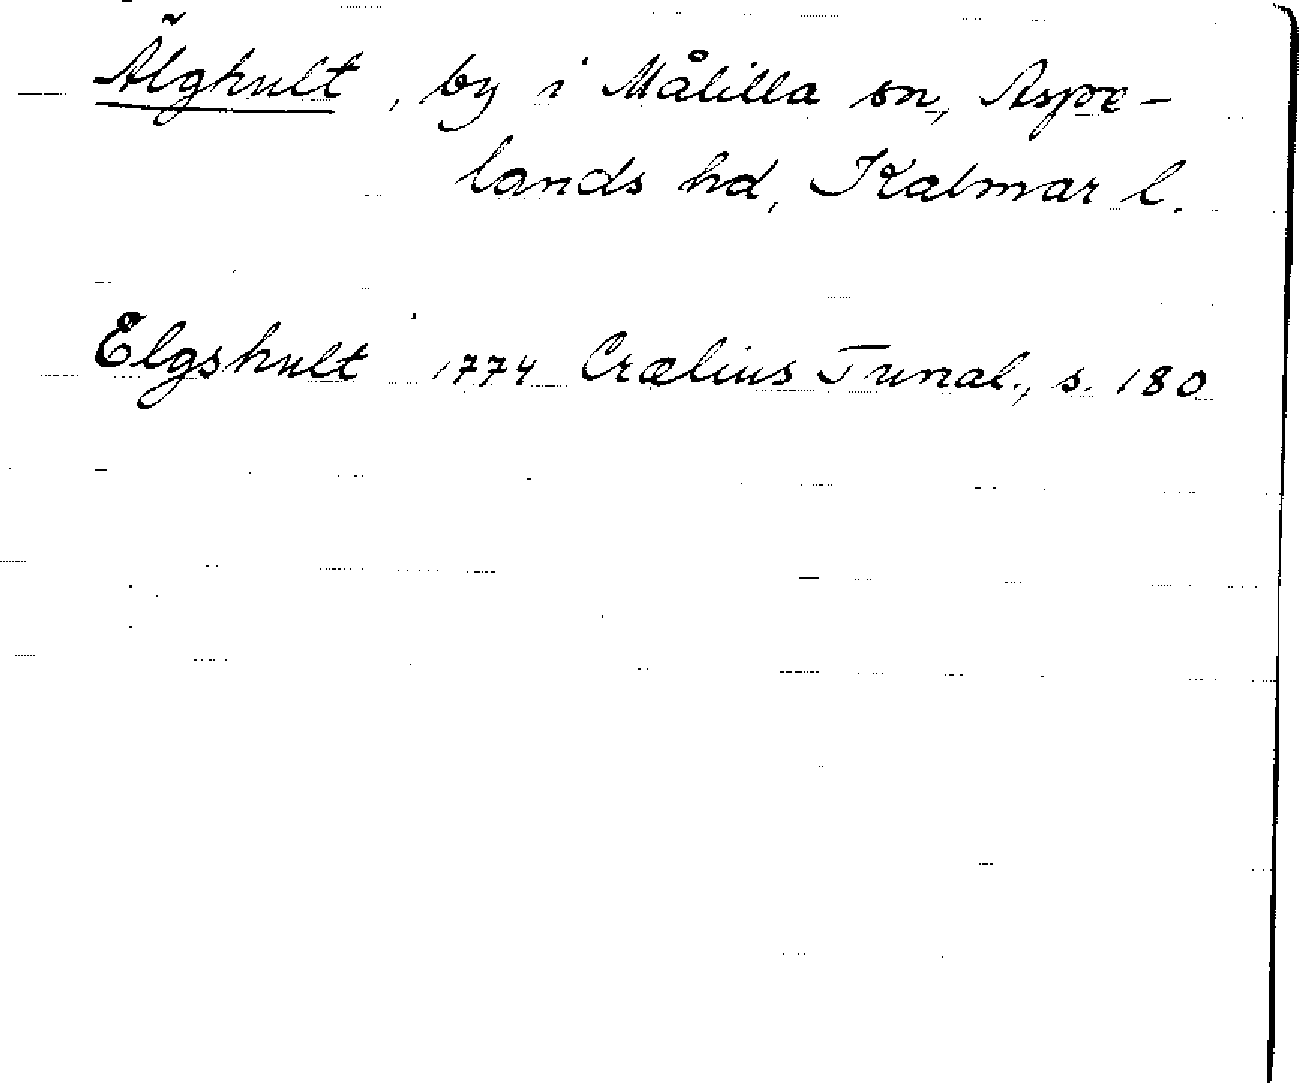 Älghult, by i Målilla sn, Aspe-
lands hd, Kalmar l.
Elgshult 1774 Crælius Tunal., s. 180